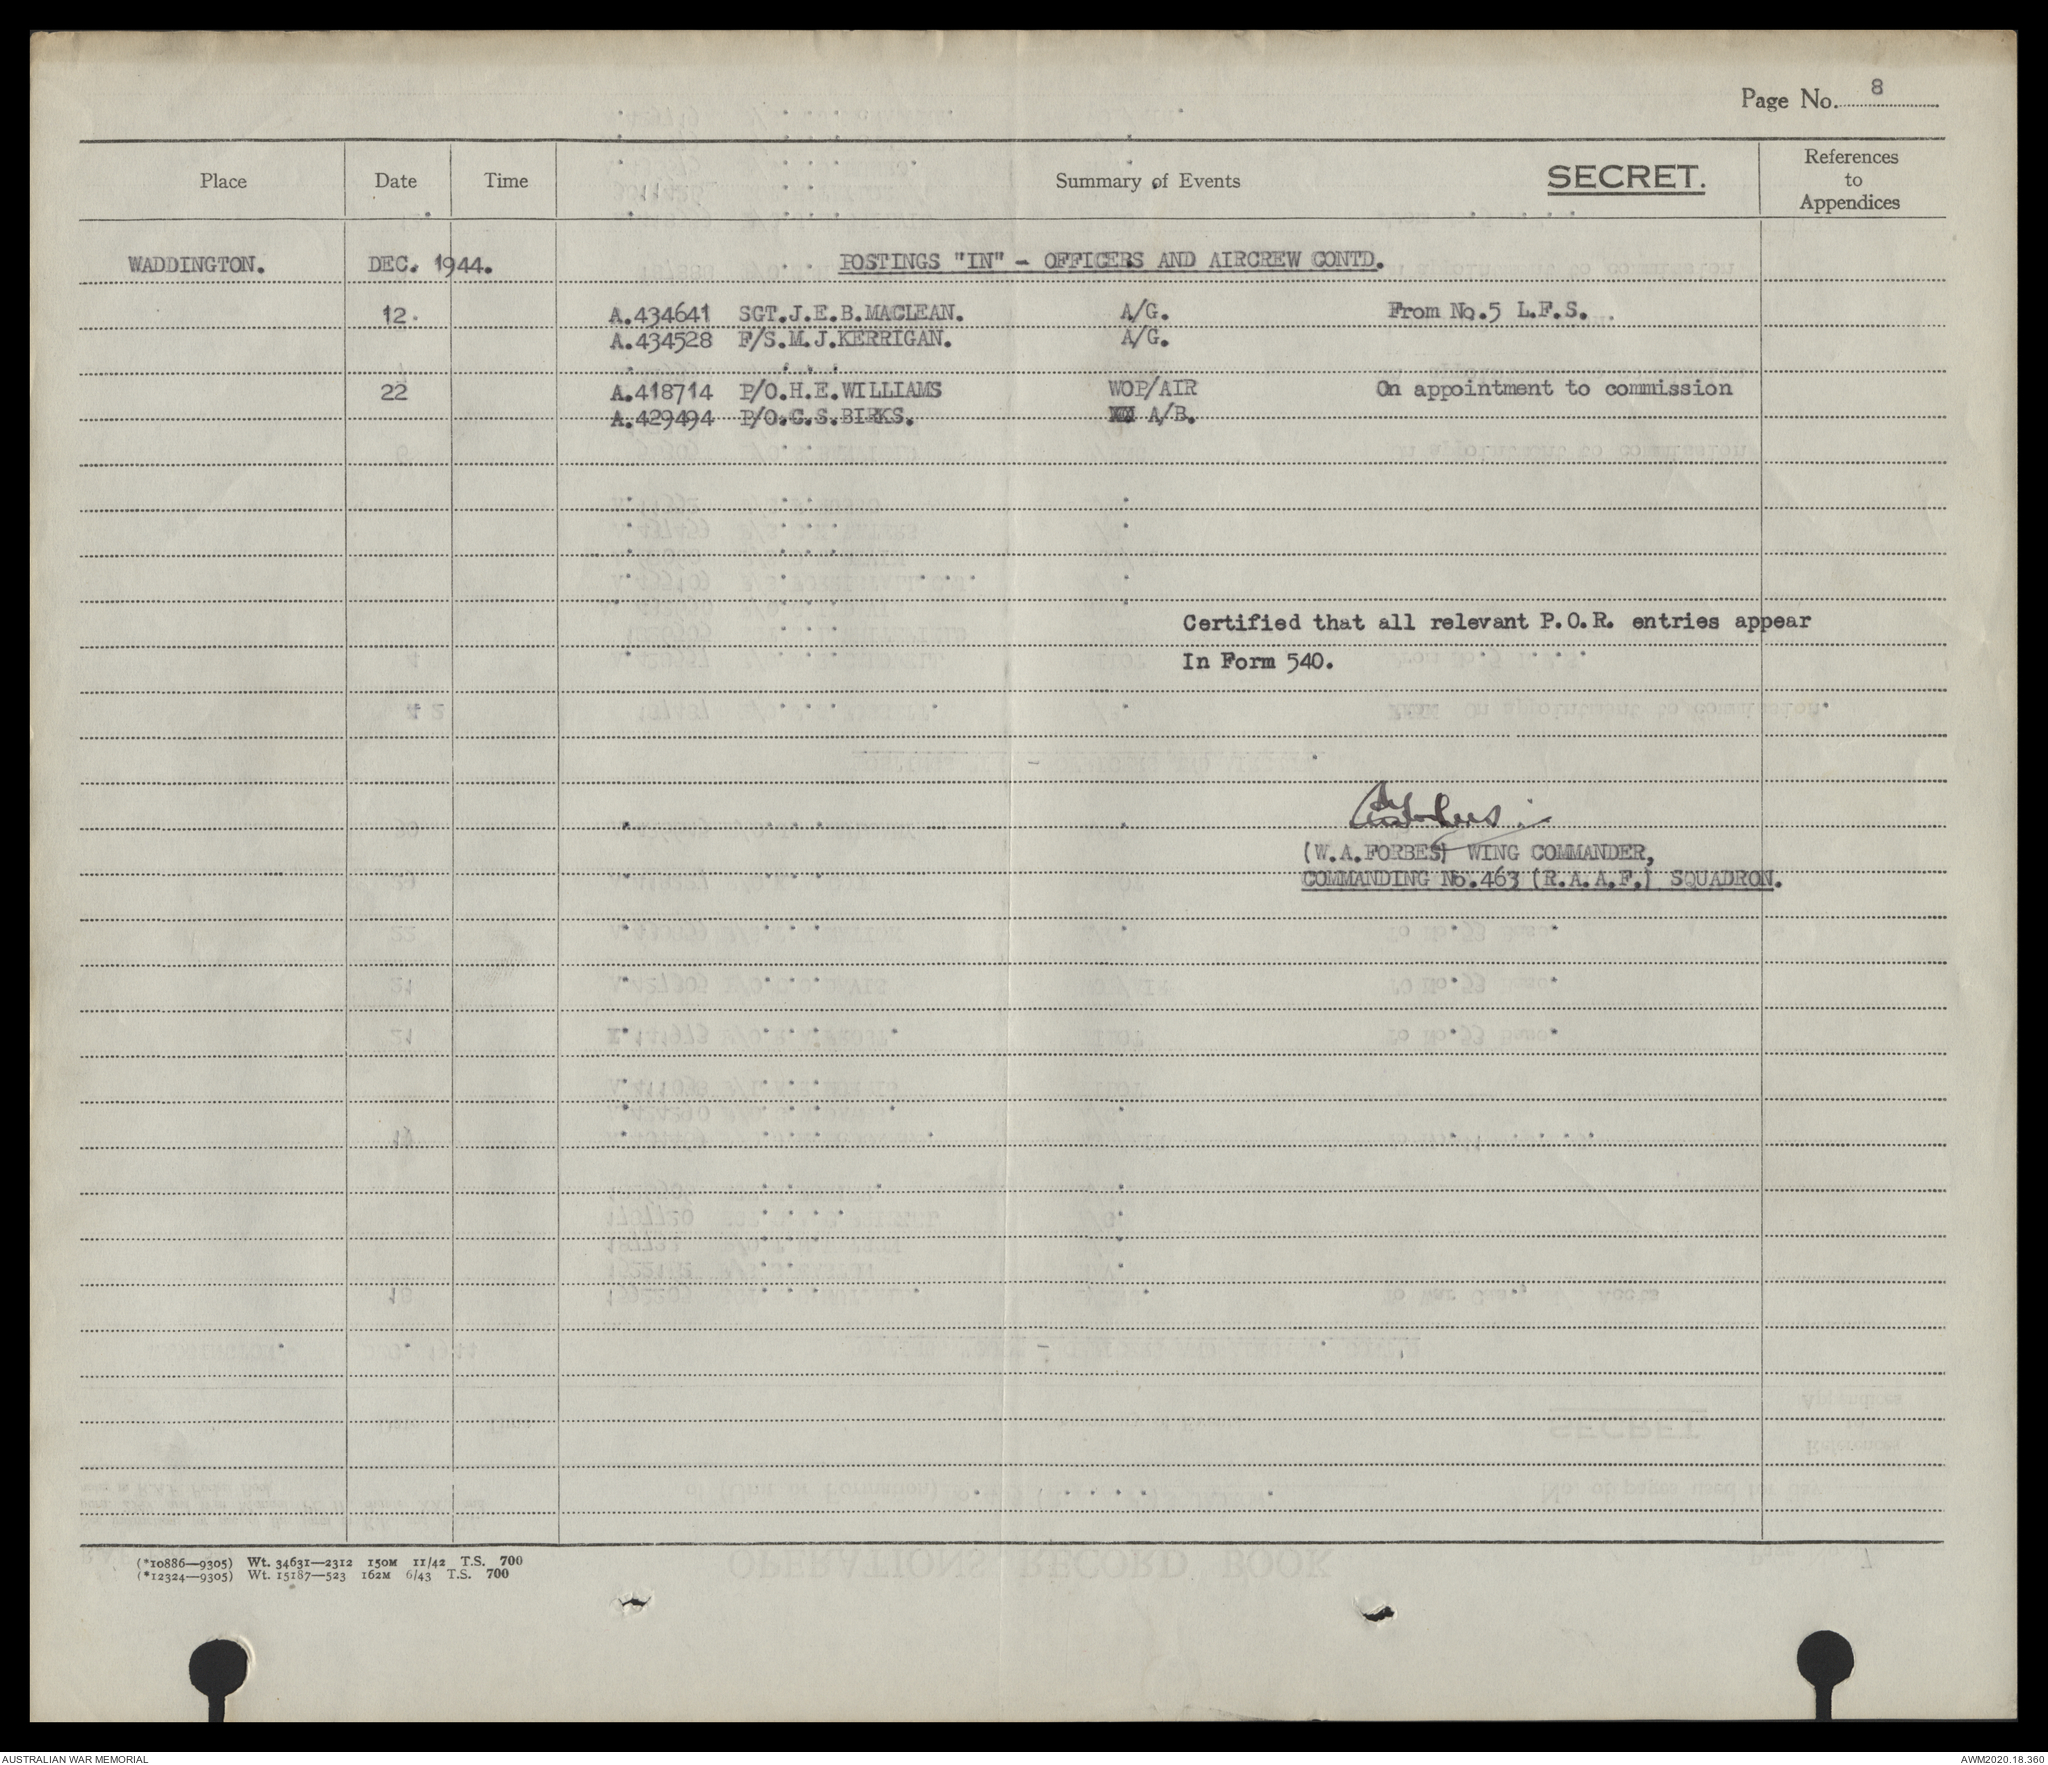 Page No. 8
Place Date Time Summary of Events SECRET. References to Appendices
WADDINGTON. DEC. 1944. POSTINGS "IN" - OFFICERS AND AIRCREW CONTD.
12. A.434641 SGT.J.E.B.MACLEAN. A/G. From No.5 L.F.S.
A.434528 F/S.M.J.KERRIGAN. A/G.
22 A.418714 P/O.H.E.WILLIAMS WOP/AIR On appointment to commission
A.429494 P/O.C.S.BIRKS. A/B.
Certified that all relevant P.O.R. entries appear
In Form 540.
(W.A.FORBES) WING COMMANDER,
COMMANDING No.463 (R.A.A.F.) SQUADRON.
(*10886—9305) Wt. 34631—2312 150M 11/42 T.S. 700
(*12324—9305) Wt. 15187—523 162M 6/43 T.S. 700
AUSTRALIAN WAR MEMORIAL AWM2020.18.360